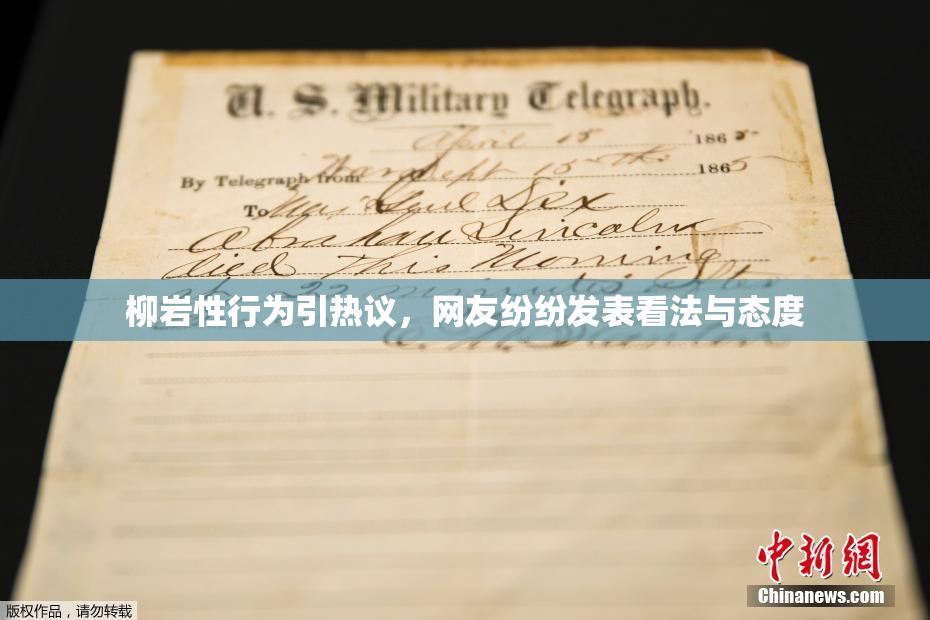 U. S. Military Telegraph.
April 15 1865
By Telegraph from War Dept 15th 1865
To Maj Genl Dix
Abraham Lincoln
died This Morning
at 22 minutes after
柳岩性行为引热议，网友纷纷发表看法与态度
E. M. Stanton
中新網
Chinanews.com
版权作品，请勿转载